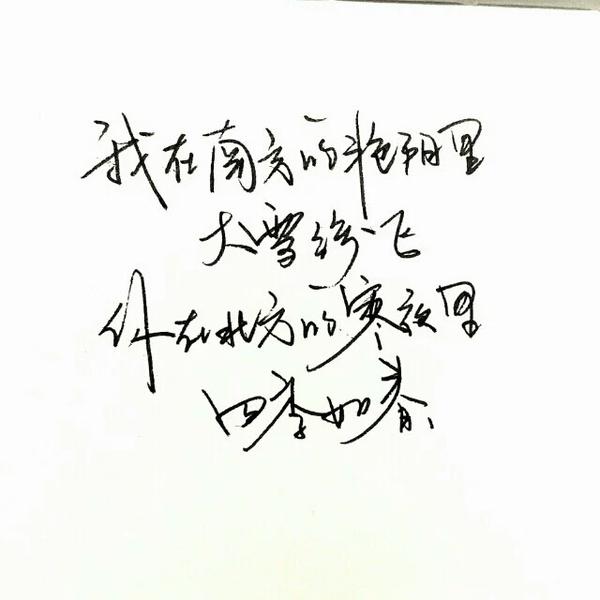 我在南方的艳阳里
大雪纷飞
你在北方的寒夜里
四季如春